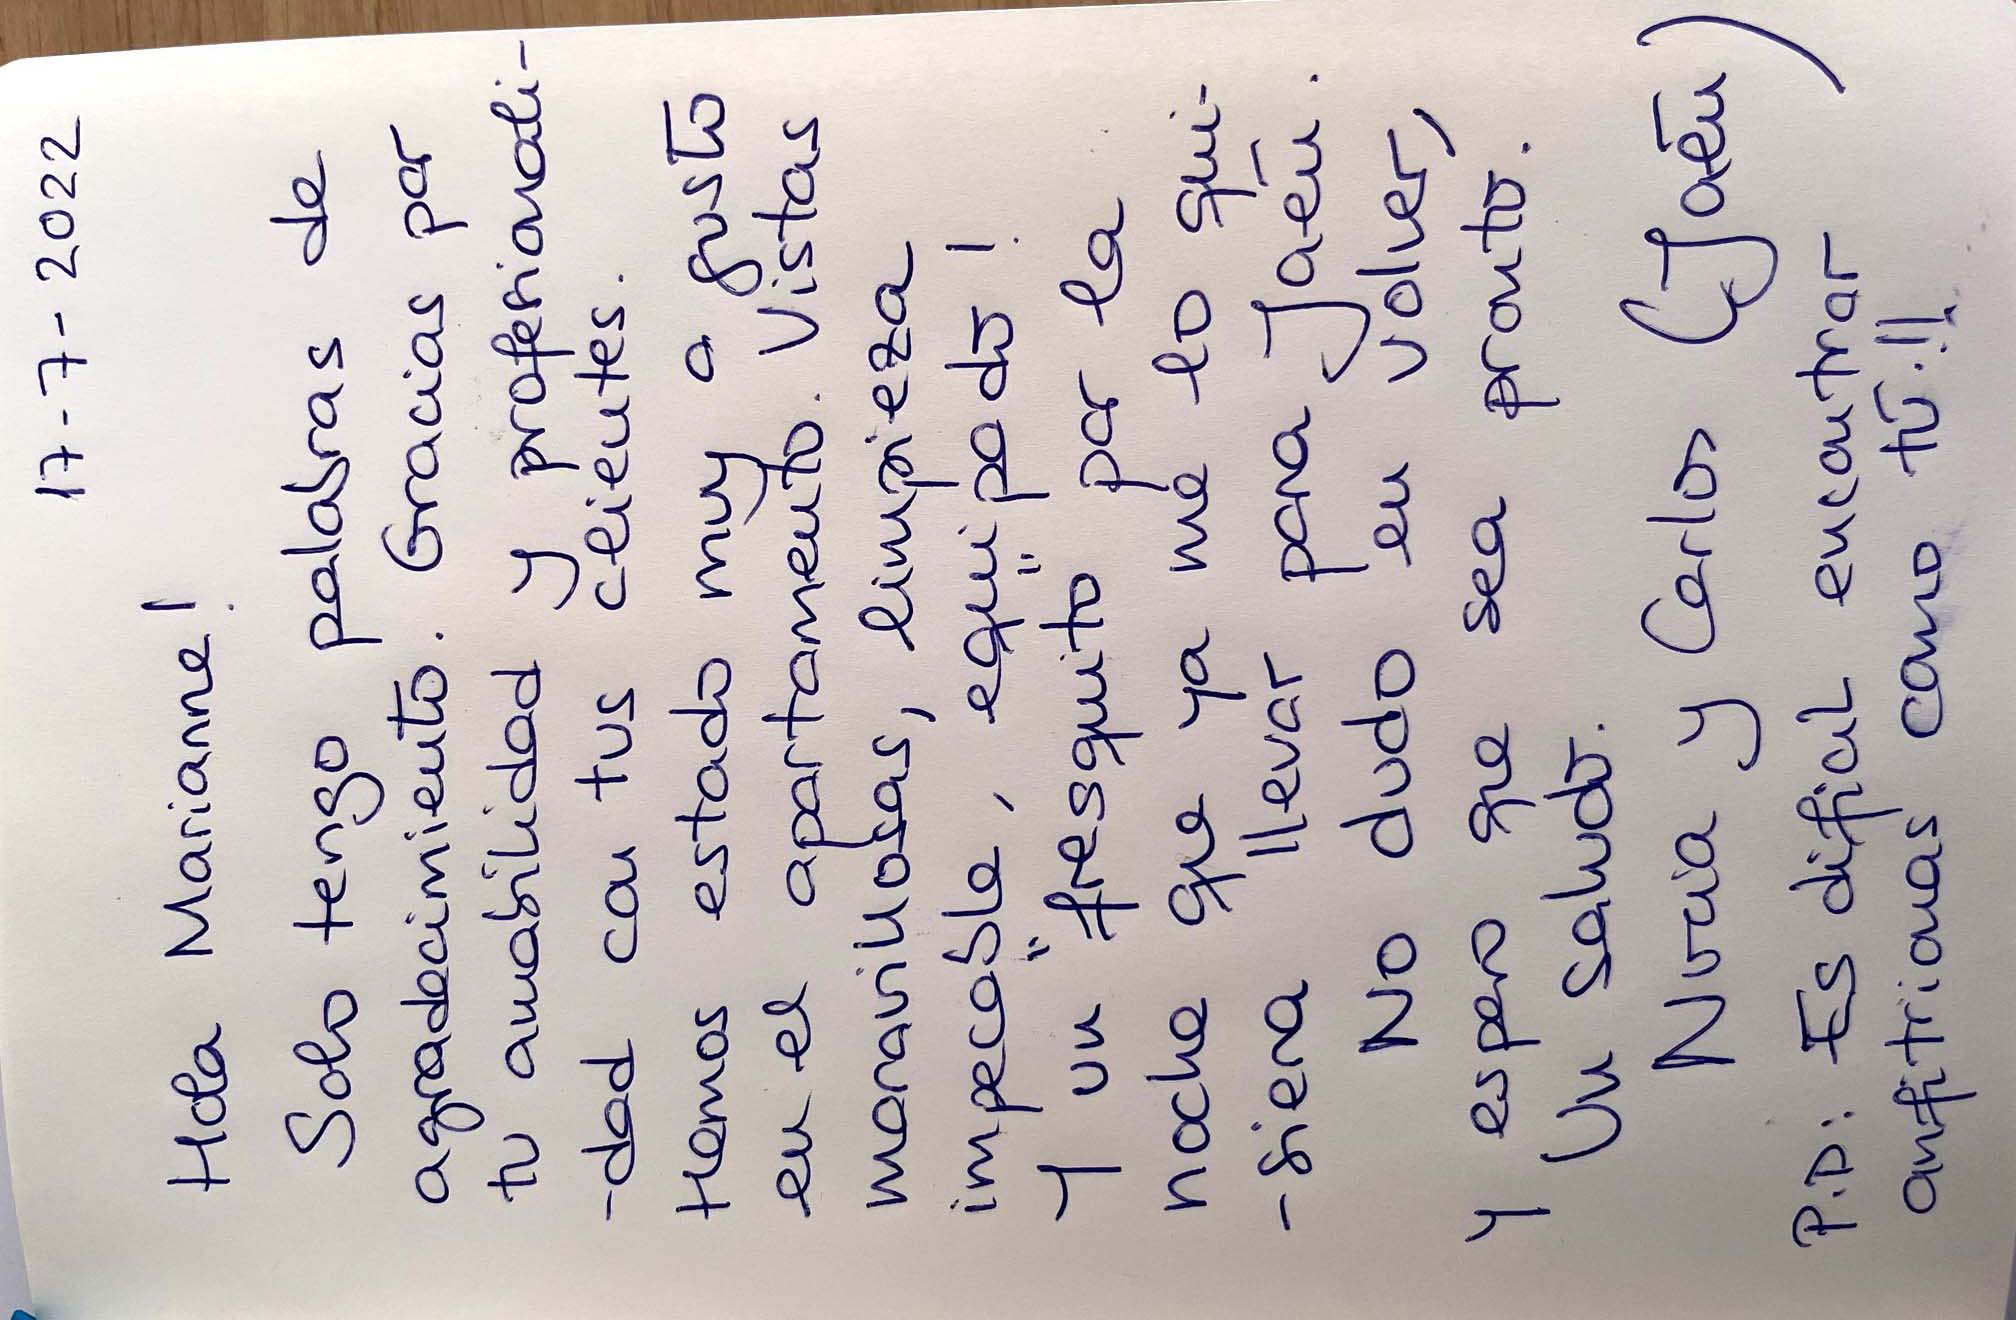 17-7-2022
Hola Marianne!
Solo tengo palabras de
agradecimiento. Gracias por
tu amabilidad y profesionali-
-dad con tus clientes.
Hemos estado muy a gusto
en el apartamento. Vistas
maravillosas, limpieza
impecable, equipado!
Y un "fresquito" por la
noche que ya me lo qui-
-siera llevar para Jaén.
No dudo en volver,
y espero que sea pronto.
Un saludo.
Nuria y Carlos (Jaén)
P.D: Es difícil encontrar
anfitrionas como tú.!!